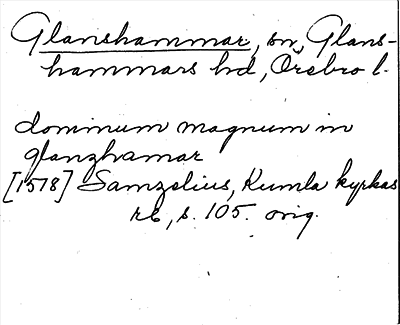 Glanshammar, sn, Glans-
hammars hd, Örebro l.
dominum magnum in
glanzhamar
[1578] Samzelius, Kumla kyrkas
rb, s. 105. orig.